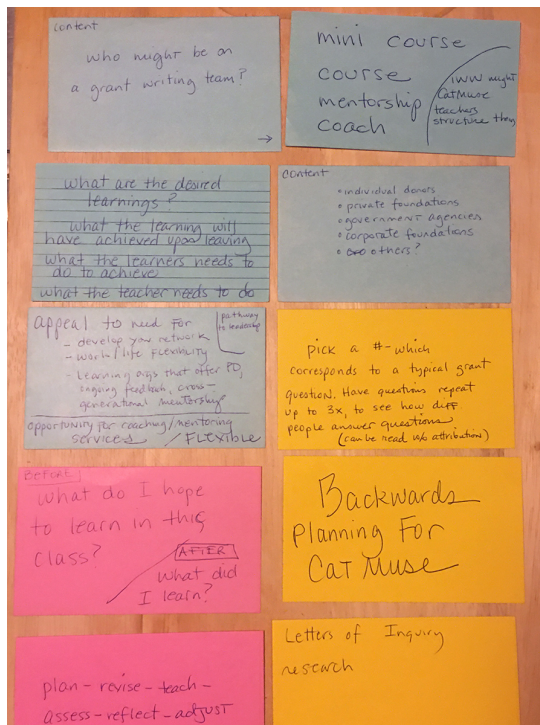 content
who might be on
a grant writing team?
→
mini course
course
mentorship
coach
IWW might
CatMuse
teachers
structure they
what are the desired
learnings?
what the learning will
have achieved upon leaving
what the learners needs to
do to achieve
what the teacher needs to do
content
• individual donors
• private foundations
• government agencies
• corporate foundations
• others?
appeal to need for
- develop your network
- work/life flexibility
- Learning orgs that offer PD,
ongoing feedback, cross-
generational mentorship
pathway
to leadership
opportunity for coaching/mentoring
services / FLEXIBLE
pick a #-which
corresponds to a typical grant
question. Have questions repeat
up to 3x, to see how diff
people answer questions
(can be read w/o attribution)
BEFORE
what do I hope
to learn in this
class?
AFTER
what did
I learn?
Backwards
Planning For
Cat Muse
plan - revise - teach -
assess - reflect - adjust
Letters of Inquiry
research